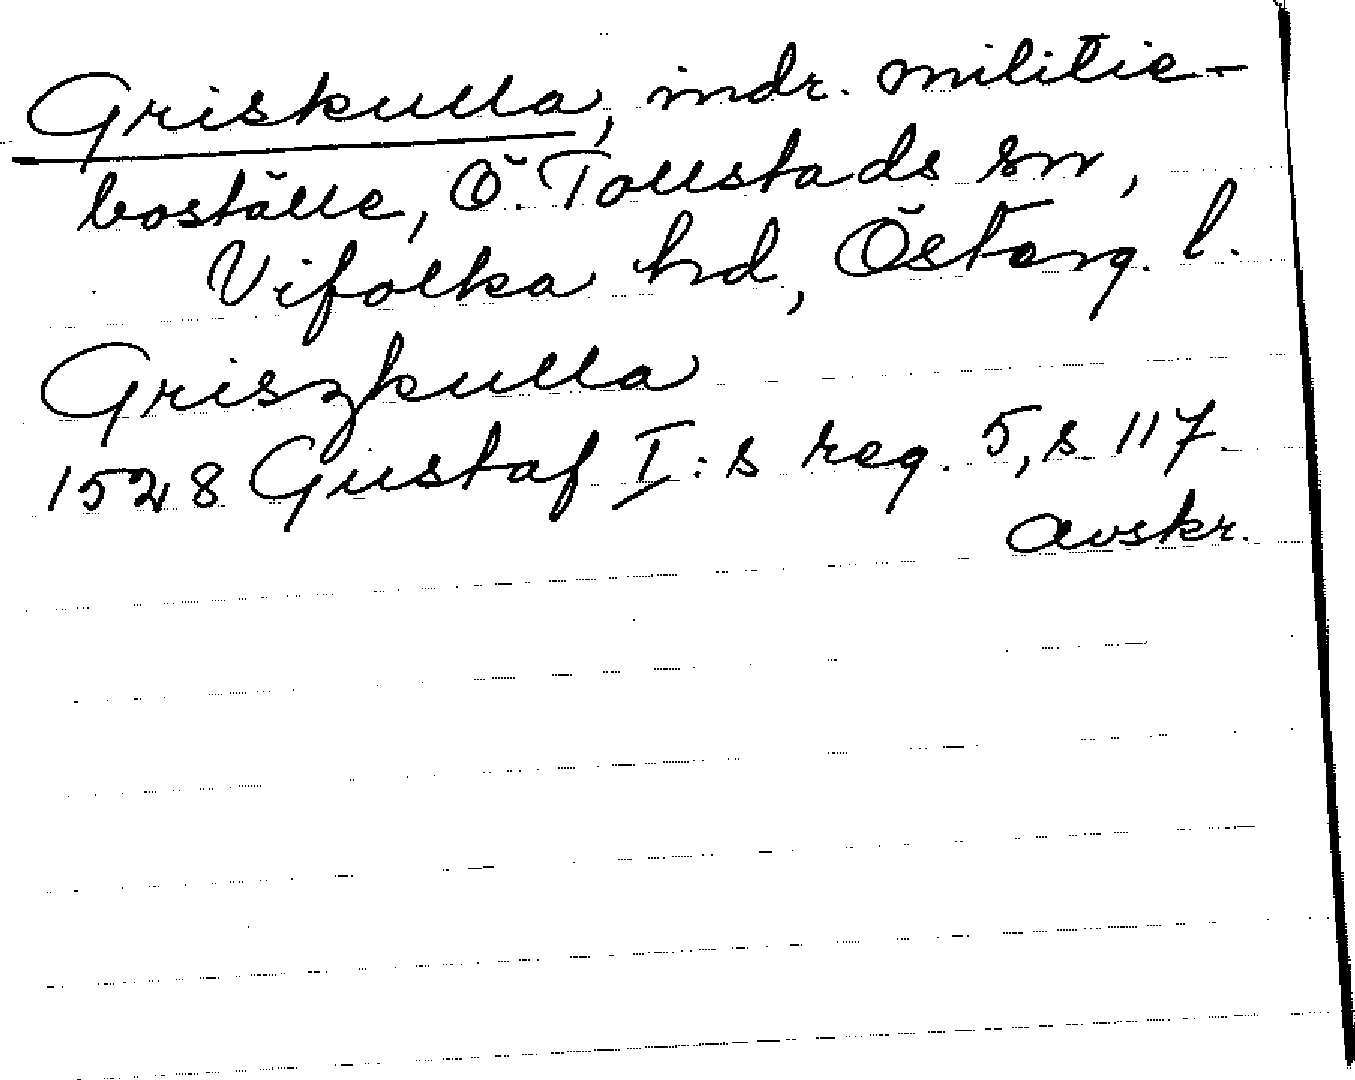 Griskulla, indr. militie-
boställe, Ö. Tollstads sn,
Vifolka hd, Österg. l.
Griszkulla
1528 Gustaf I:s reg. 5, s 117.
avskr.